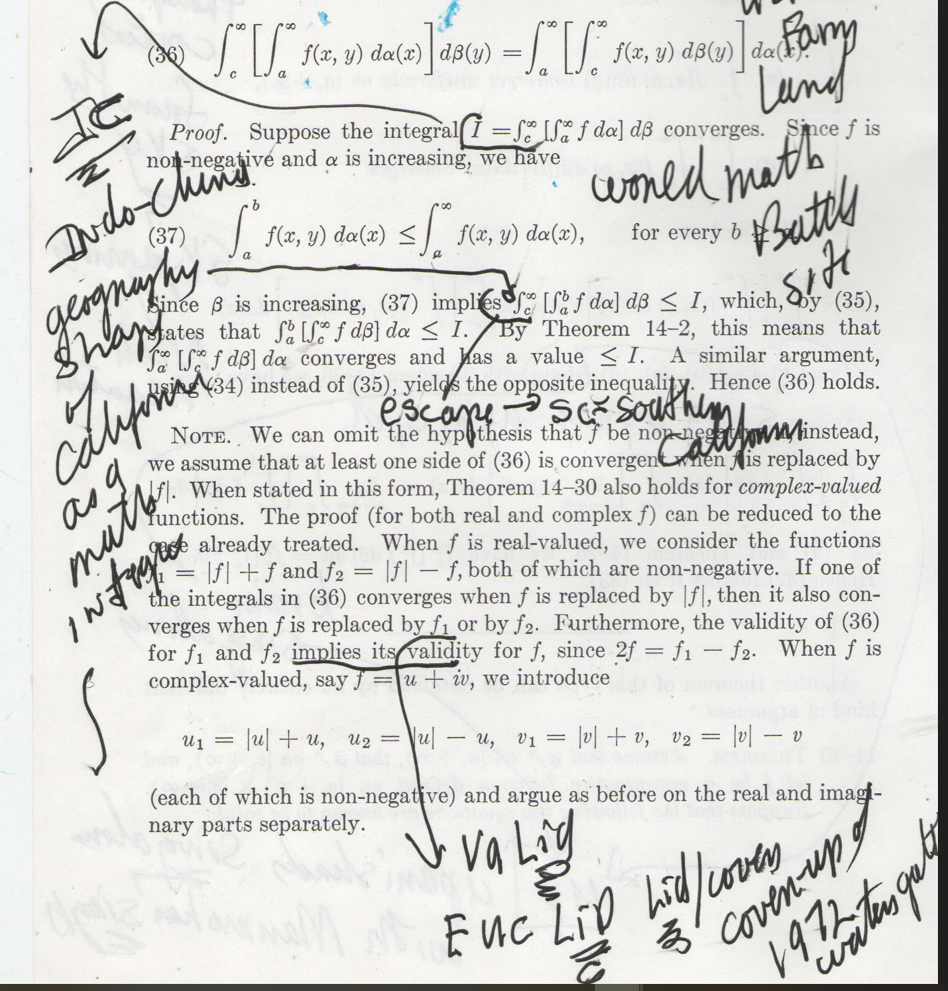 (36) ∫_c^∞ [∫_a^∞ f(x, y) dα(x)] dβ(y) = ∫_a^∞ [∫_c^∞ f(x, y) dβ(y)] dα(x).
Farm
Land
Proof. Suppose the integral I = ∫_c^∞ [∫_a^∞ f dα] dβ converges. Since f is
non-negative and α is increasing, we have
IC
Indo-China
world math
Battle
site
(37) ∫_a^b f(x, y) dα(x) ≤ ∫_a^∞ f(x, y) dα(x), for every b ≥
geography
shape
of
California
as a
math
integral
∫
Since β is increasing, (37) implies ∫_c^∞ [∫_a^b f dα] dβ ≤ I, which, by (35),
states that ∫_a^b [∫_c^∞ f dβ] dα ≤ I. By Theorem 14–2, this means that
∫_a^∞ [∫_c^∞ f dβ] dα converges and has a value ≤ I. A similar argument,
using (34) instead of (35), yields the opposite inequality. Hence (36) holds.
escape → sc ≈ southern
California
NOTE. We can omit the hypothesis that f be non-negative, instead,
we assume that at least one side of (36) is convergent when f is replaced by
|f|. When stated in this form, Theorem 14–30 also holds for complex-valued
functions. The proof (for both real and complex f) can be reduced to the
case already treated. When f is real-valued, we consider the functions
f₁ = |f| + f and f₂ = |f| − f, both of which are non-negative. If one of
the integrals in (36) converges when f is replaced by |f|, then it also con-
verges when f is replaced by f₁ or by f₂. Furthermore, the validity of (36)
for f₁ and f₂ implies its validity for f, since 2f = f₁ − f₂. When f is
complex-valued, say f = u + iv, we introduce
u₁ = |u| + u, u₂ = |u| − u, v₁ = |v| + v, v₂ = |v| − v
(each of which is non-negative) and argue as before on the real and imagi-
nary parts separately.
VaLid
EucLiD Lid/cover
cover-up of
1972
watergate